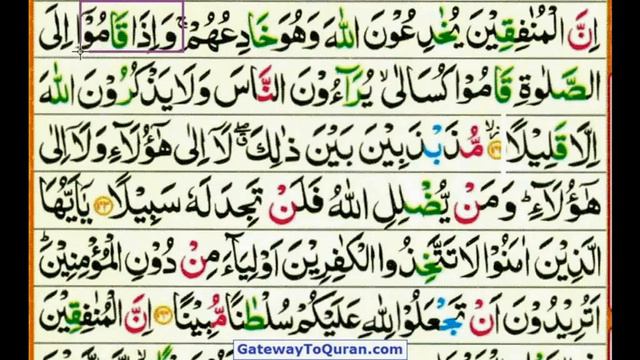 اِنَّ الْمُنٰفِقِيْنَ يُخٰدِعُوْنَ اللّٰهَ وَهُوَ خَادِعُهُمْ ۚ وَاِذَا قَامُوْۤا اِلَى
الصَّلٰوةِ قَامُوْا كُسَالٰى ۙ يُرَآءُوْنَ النَّاسَ وَلَا يَذْكُرُوْنَ اللّٰهَ
اِلَّا قَلِيْلًا ۙ﴿۱۴۲﴾ مُّذَبْذَبِيْنَ بَيْنَ ذٰلِكَ ۖ لَاۤ اِلٰى هٰٓؤُلَآءِ وَلَاۤ اِلٰى
هٰٓؤُلَآءِ ؕ وَمَنْ يُّضْلِلِ اللّٰهُ فَلَنْ تَجِدَ لَهٗ سَبِيْلًا ﴿۱۴۳﴾ يٰۤاَيُّهَا
الَّذِيْنَ اٰمَنُوْا لَا تَتَّخِذُوا الْكٰفِرِيْنَ اَوْلِيَآءَ مِنْ دُوْنِ الْمُؤْمِنِيْنَ ؕ
اَتُرِيْدُوْنَ اَنْ تَجْعَلُوْا لِلّٰهِ عَلَيْكُمْ سُلْطٰنًا مُّبِيْنًا ﴿۱۴۴﴾ اِنَّ الْمُنٰفِقِيْنَ
GatewayToQuran.com